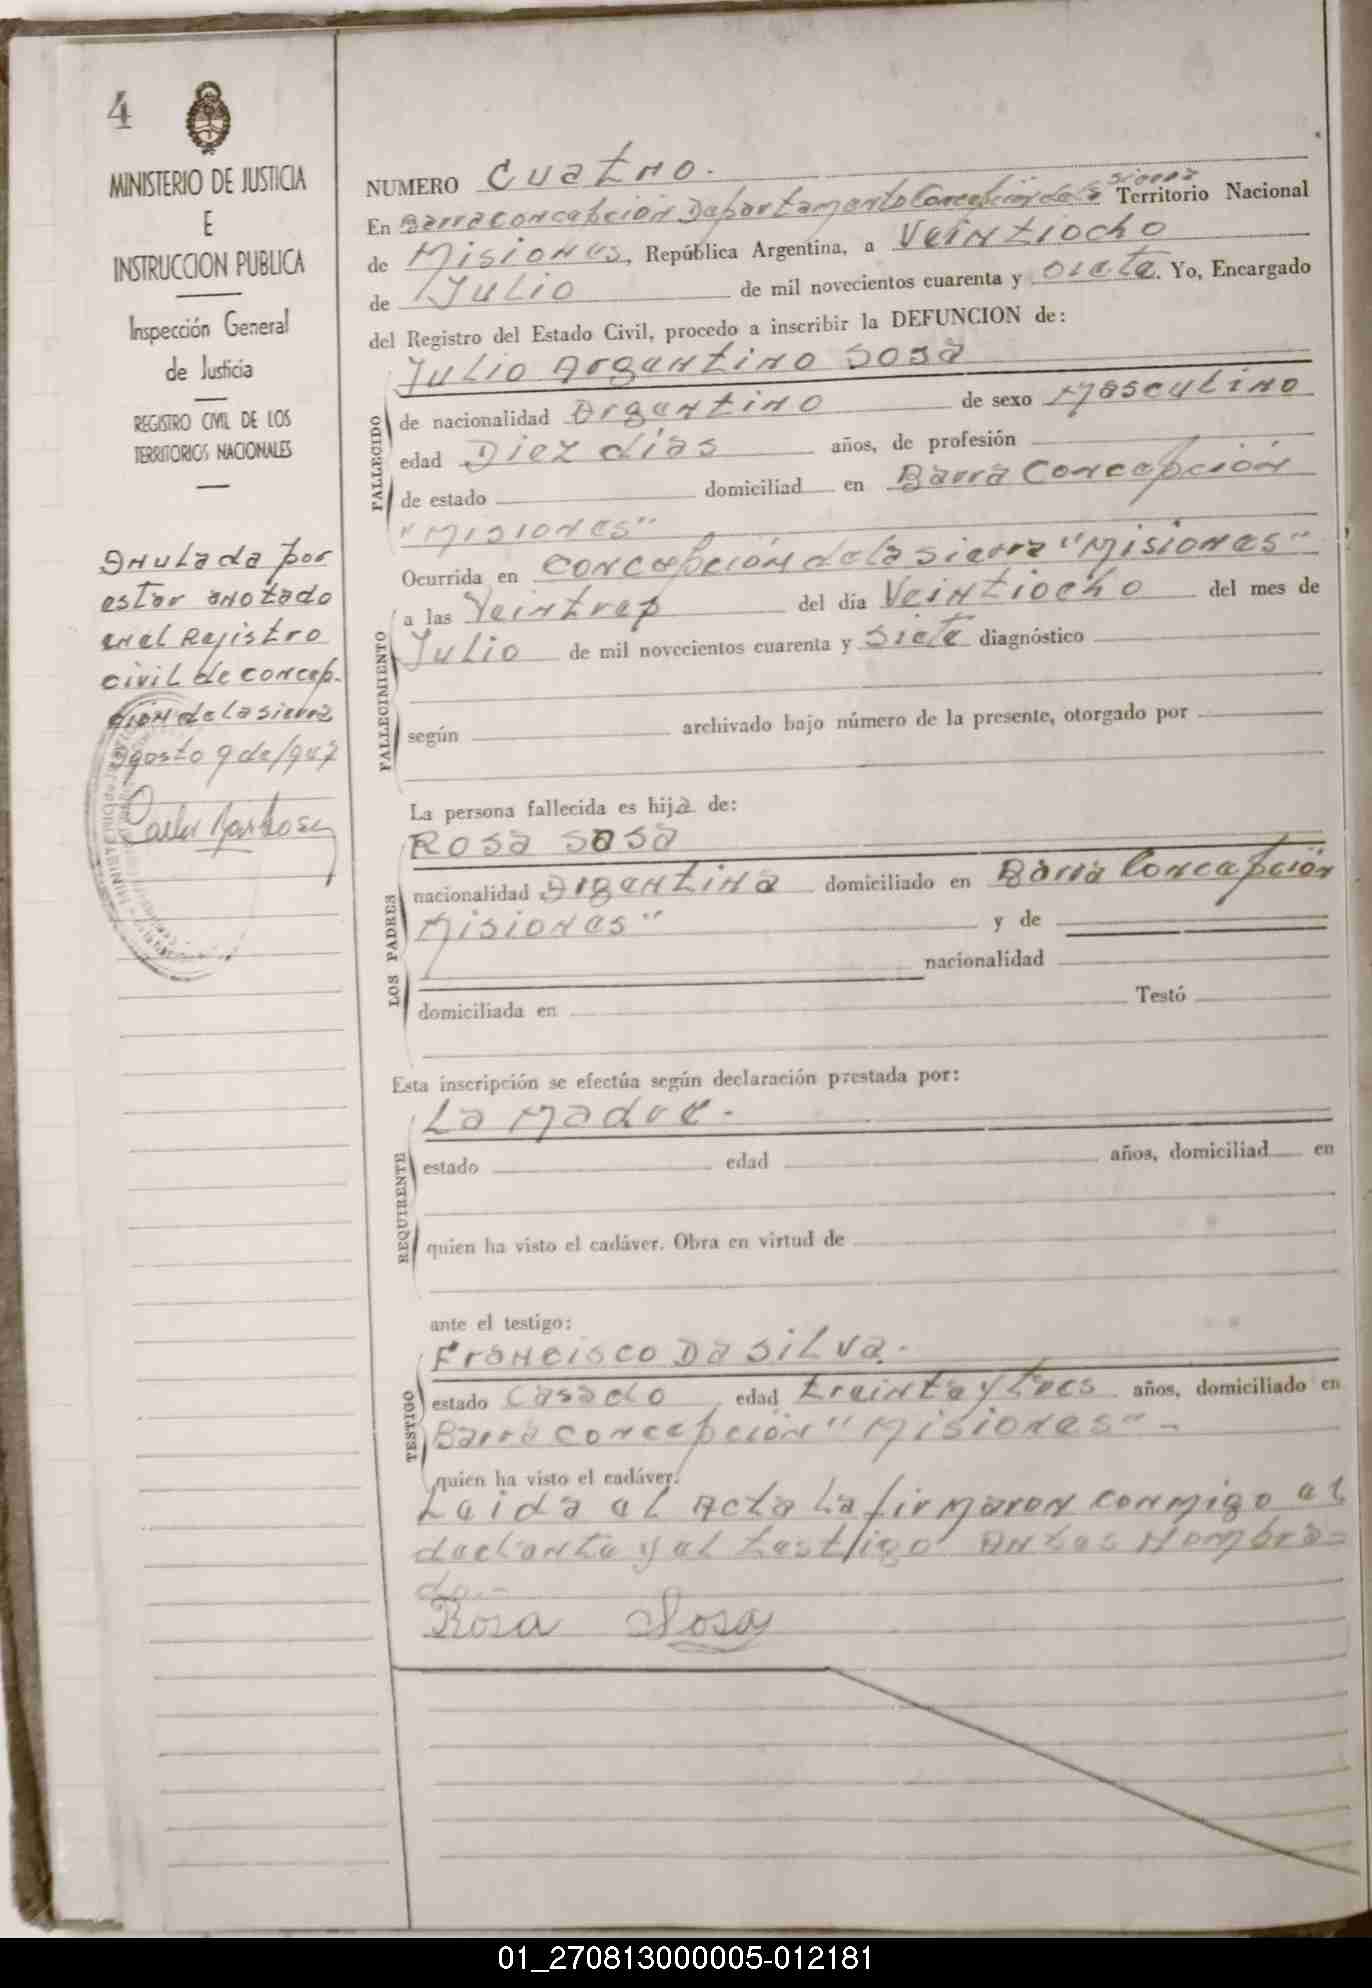 4
MINISTERIO DE JUSTICIA
E
INSTRUCCION PUBLICA
Inspección General
de Justicia
REGISTRO CIVIL DE LOS
TERRITORIOS NACIONALES
Anulada por
estar anotado
en el Rejistro
civil de concep-
ción de la sierra
Agosto 9 de/947
NUMERO Cuatro.
En Barra concepción Departamento Concepción de la sierra Territorio Nacional
de Misiones, República Argentina, a Veintiocho
de Julio de mil novecientos cuarenta y siete. Yo, Encargado
del Registro del Estado Civil, procedo a inscribir la DEFUNCION de:
Julio Argentino Sosa
FALLECIDO
de nacionalidad Argentino de sexo Masculino
edad Diez días años, de profesión
de estado domiciliad en Barra Concepción
"Misiones"
Ocurrida en Concepción de la sierra "Misiones"
FALLECIMIENTO
a las del día Veintiocho del mes de
Julio de mil novecientos cuarenta y siete diagnóstico
según archivado bajo número de la presente, otorgado por
La persona fallecida es hija de:
Rosa Sosa
LOS PADRES
nacionalidad Argentina domiciliado en Barra Concepción
Misiones" y de
nacionalidad
domiciliada en Testó
Esta inscripción se efectúa según declaración prestada por:
La Madre.
REQUIRENTE
estado edad años, domiciliad en
quien ha visto el cadáver. Obra en virtud de
ante el testigo:
Francisco Da Silva.
TESTIGO
estado Casado edad treinta y tres años, domiciliado en
Barra concepción "Misiones"-
quien ha visto el cadáver.
Leida el Acta la firmaron conmigo el
y el testigo antes Nombra-
do.-
Rosa Sosa
01_270813000005-012181